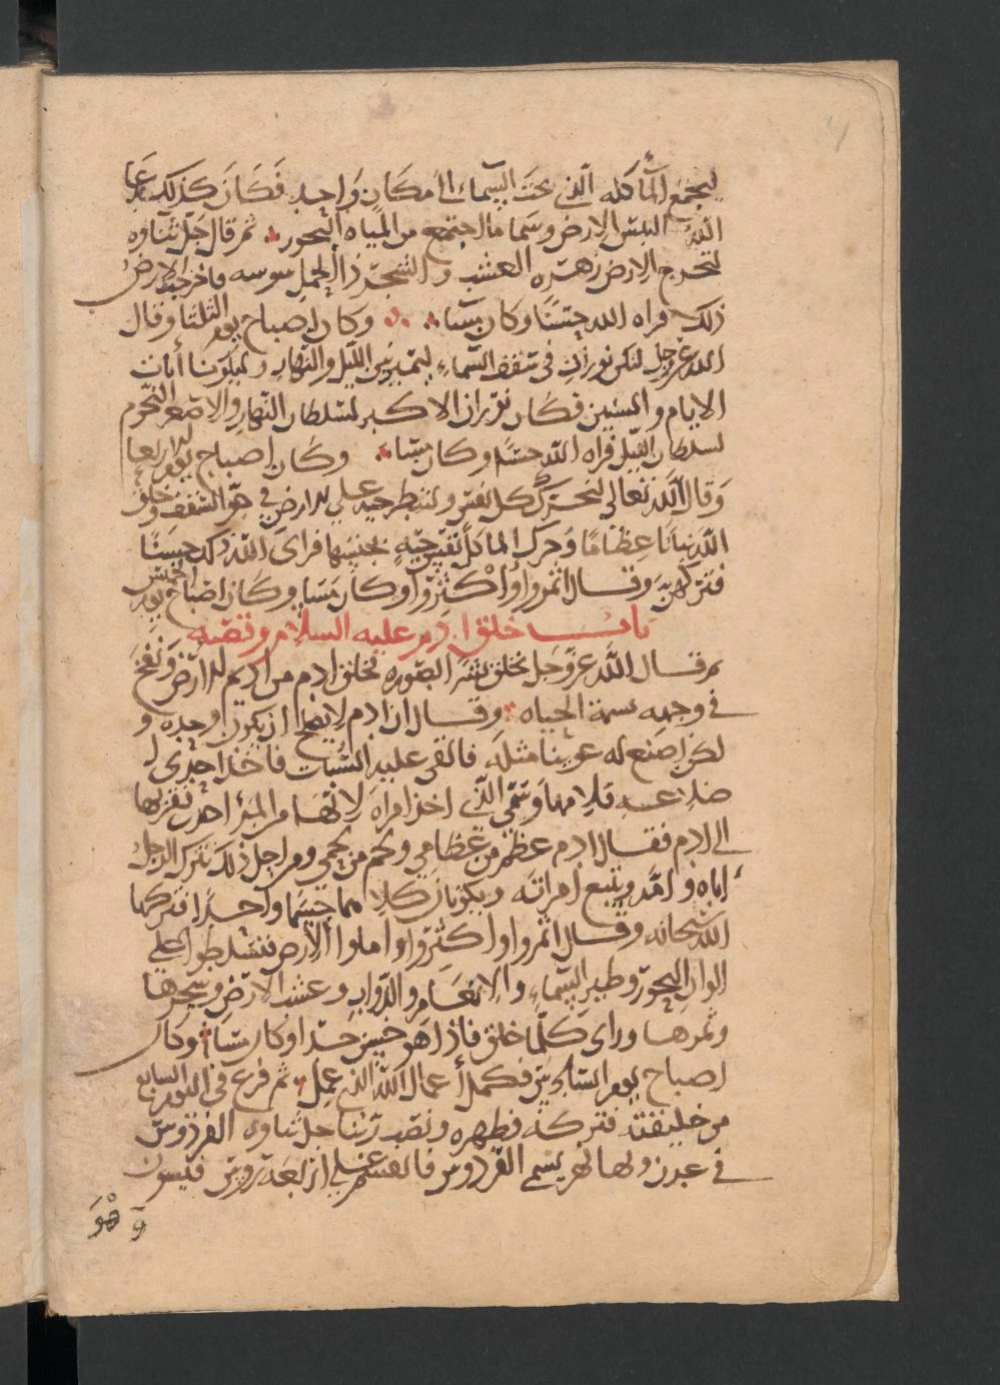 ليجتمع المآ كله الذي تحت السمآء الى مكان واحد فكان كذلك ودعا
الله اليبس الارض وسما ما اجتمع من المياه البحور ثم قال جل ثناوه
لتخرج الارض زهره العشب والشجر ذا الحمل سوسه فاخرجت الارض
ذلك فراه الله حسنا وكان مسا وكان اصباح يوم الثلثا وقال
الله عز وجل لتكن نوران في سقف السماء ليتميز بين الليل والنهار وليكونا ايات
الايام والسنين فكان نوران الاكبر لسلطان النهار والاصغر والنجوم
لسلطان الليل فراه الله حسنا وكان مسا وكان اصباح يوم الاربعا
وقال الله تعالى لتحرك كل نفس ولتطر حيه على الارض في جو السقف وخلق
الله نينانا عظاما وحرك الما كل نفس حيه بجنسها فراى الله ذلك حسنا
فبركهن وقال اثمروا واكثروا وكان مسا وكان اصباح يوم الخميس
باب خلق ادم عليه السلام وقصته
ثم قال الله عز وجل نخلق بشرا بصوره فخلق ادم من اديم الارض ونفخ
في وجهه نسمة الحياه وقال ان ادم لا يصلح ان يكون وحده و
لكن اصنع له عوينا مثله فالقى عليه السبات فاخذ احدى ا
ضلاعه فلامها وسمى الذي اخذ امراه لانها من المرأ اخذت فقربها
الى ادم فقال ادم عظم من عظامي ولحم من لحمي ومن اجل ذلك يترك الرجل
اباه وامه ويتبع امراته ويكونان كلاهما جسما واحدا فبركهما
الله سبحانه وقال اثمروا واكثروا واملوا الارض وتسلطوا على
انوان البحور وطير السماء والانعام والدواب وعشب الارض وشجرها
وثمرها وراى كلما خلق فاذا هو حسن جدا وكان مسا وكان
اصباح يوم السادس فكمل اعمال الله الذي عمل ثم فرغ في اليوم السابع
من خليقته فبركه فطهره ونصب ربنا جل ثناوه الفردوس
في عدن ولها نهر يسمى الفردوس فانقسم على اربعة روس فيسون
وهو